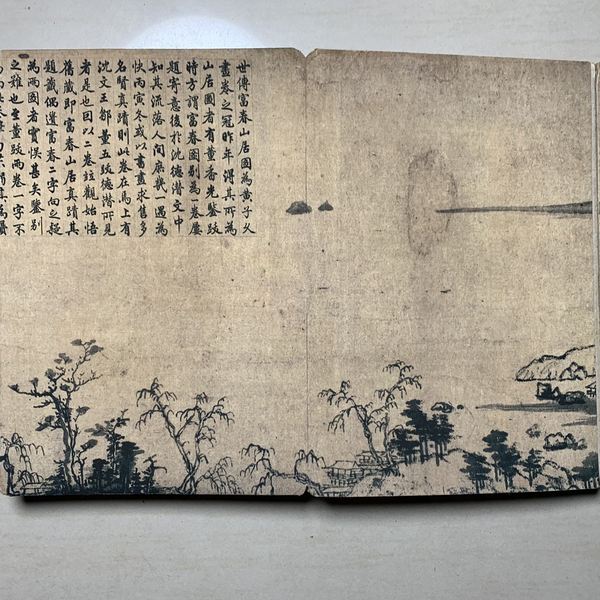 世傳富春山居圖為黃子久
畫卷之冠昨年得其所為
山居圖者有董香光鑒跋
時方謂富春圖別為一卷屢
題寄意後於沈德潛文中
知其流落人間庶幾一遇為
快丙寅冬或以書畫求售多
名賢真蹟則此卷在焉上有
沈文王鄒董五跋德潛所見
者是也因以二卷竝觀始悟
舊藏即富春山居真蹟其
題籤偶遺富春二字向之疑
為兩圖者實悞甚矣鑒別
之難也至董跋兩卷一字不